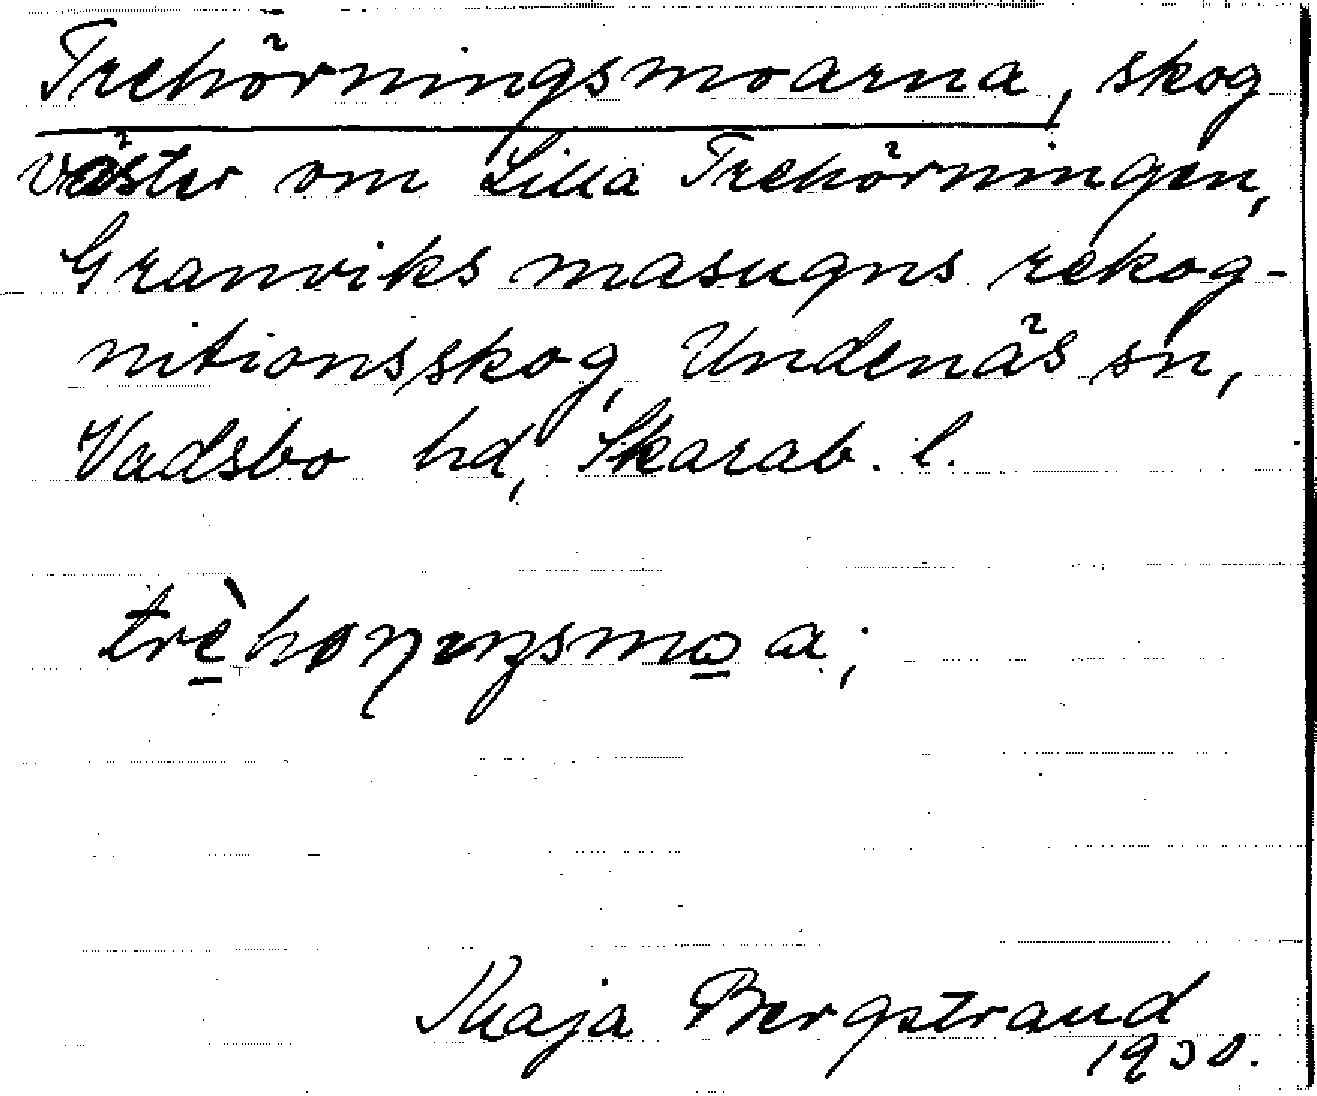 Trehörningsmoarna, skog
väster om Lilla Trehörningen,
Granviks masugns rekog-
nitionsskog, Undenäs sn,
Vadsbo hd, Skarab. l.
Maja Bergstrand
1930.